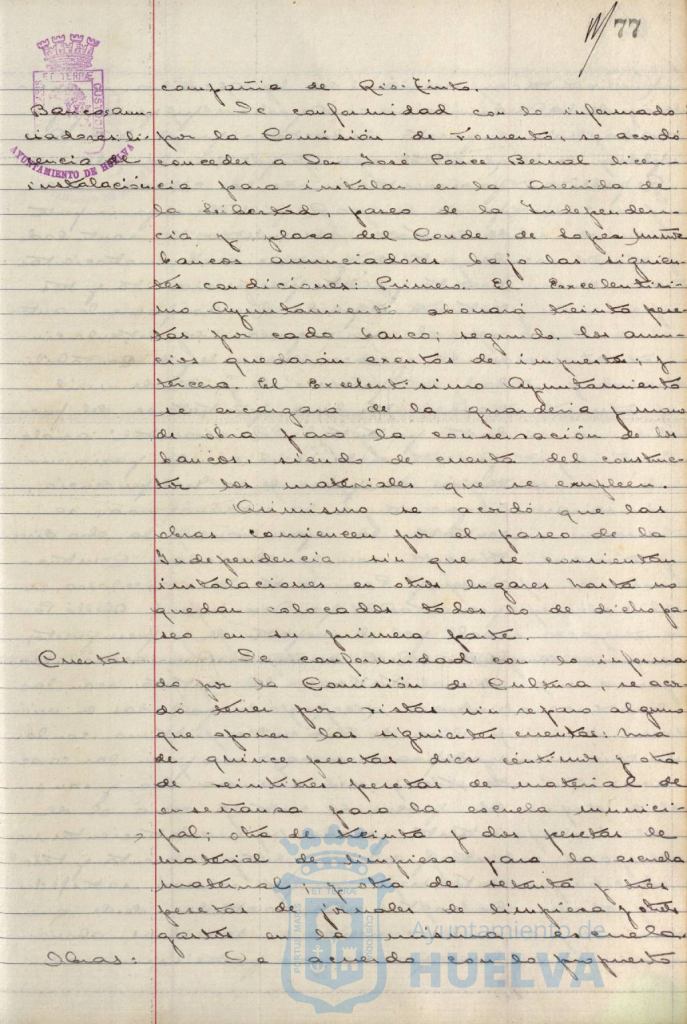 77
compañia de Rio-Tinto.
Bancos anun- De conformidad con lo informado
ciadores: li- por la Comisión de Fomento, se acordó
cencia de conceder a Don José Ponce Bernal licen-
instalación cia para instalar en la Avenida de
la Libertad, paseo de la Independen-
cia y plaza del Conde de Lopez Muñoz
bancos anunciadores bajo las siguien-
tes condiciones: Primero. El Excelentisi-
mo Ayuntamiento abonará treinta pese-
tas por cada banco; segundo. los anun-
cios quedarán exentos de impuestos; y
tercera. El Excelentisimo Ayuntamiento
se encargara de la guarderia y mano
de obra para la conservación de los
bancos, siendo de cuenta del construc-
tor los materiales que se empleen.
Asimismo se acordó que las
obras comiencen por el paseo de la
Independencia sin que se consientan
instalaciones en otros lugares hasta no
quedar colocados todos lo de dicho pa-
seo en su primera parte.
Cuentas. De conformidad con lo informa
do por la Comisión de Cultura, se acor-
dó tener por vistas sin reparo alguno
que oponer las siguientes cuentas: una
de quince pesetas diez céntimos y otra
de veintitres pesetas de material de
enseñansa para la escuela munici-
pal; otra de treinta y dos pesetas de
material de limpiesa para la escuela
maternal; y otra de setenta y tres
pesetas de jornales de limpiesa y otros
gastos en la misma escuela.
Obras: De acuerdo con lo propuesto
AYUNTAMIENTO DE HUELVA
Ayuntamiento de
HUELVA